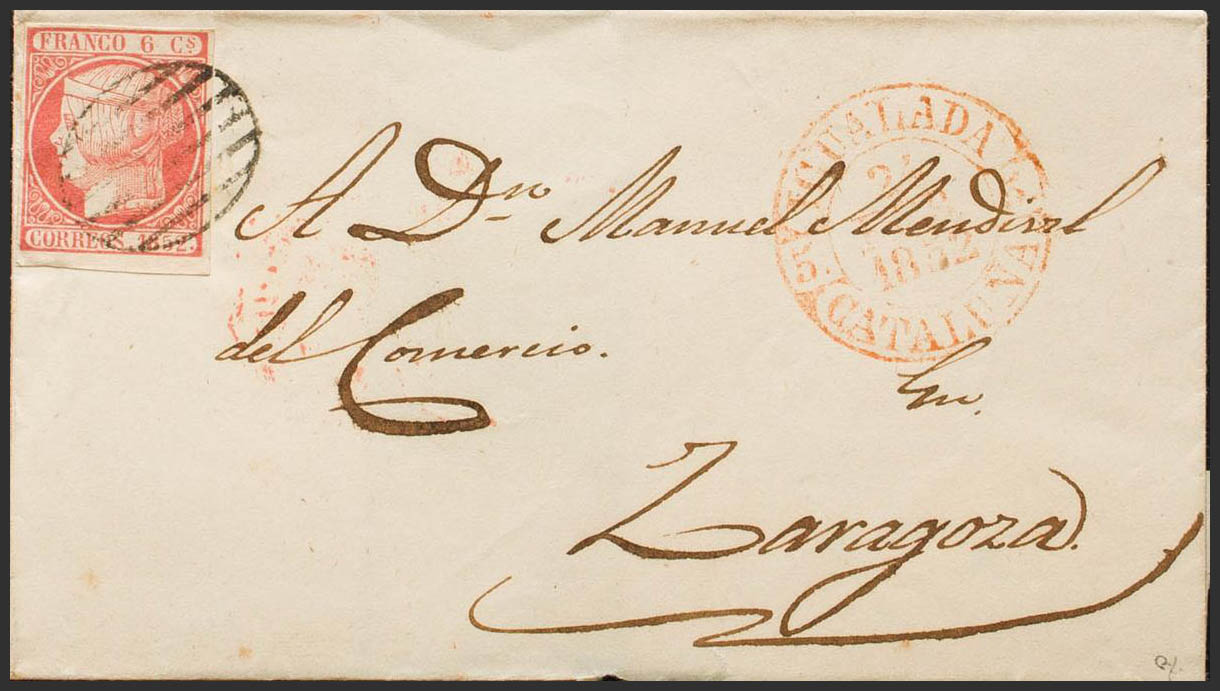 FRANCO 6 Cs
CORREOS 1852
IGUALADA
2
1852
CATALUÑA
A Dn Manuel Mendival
del Comercio.
En
Zaragoza.